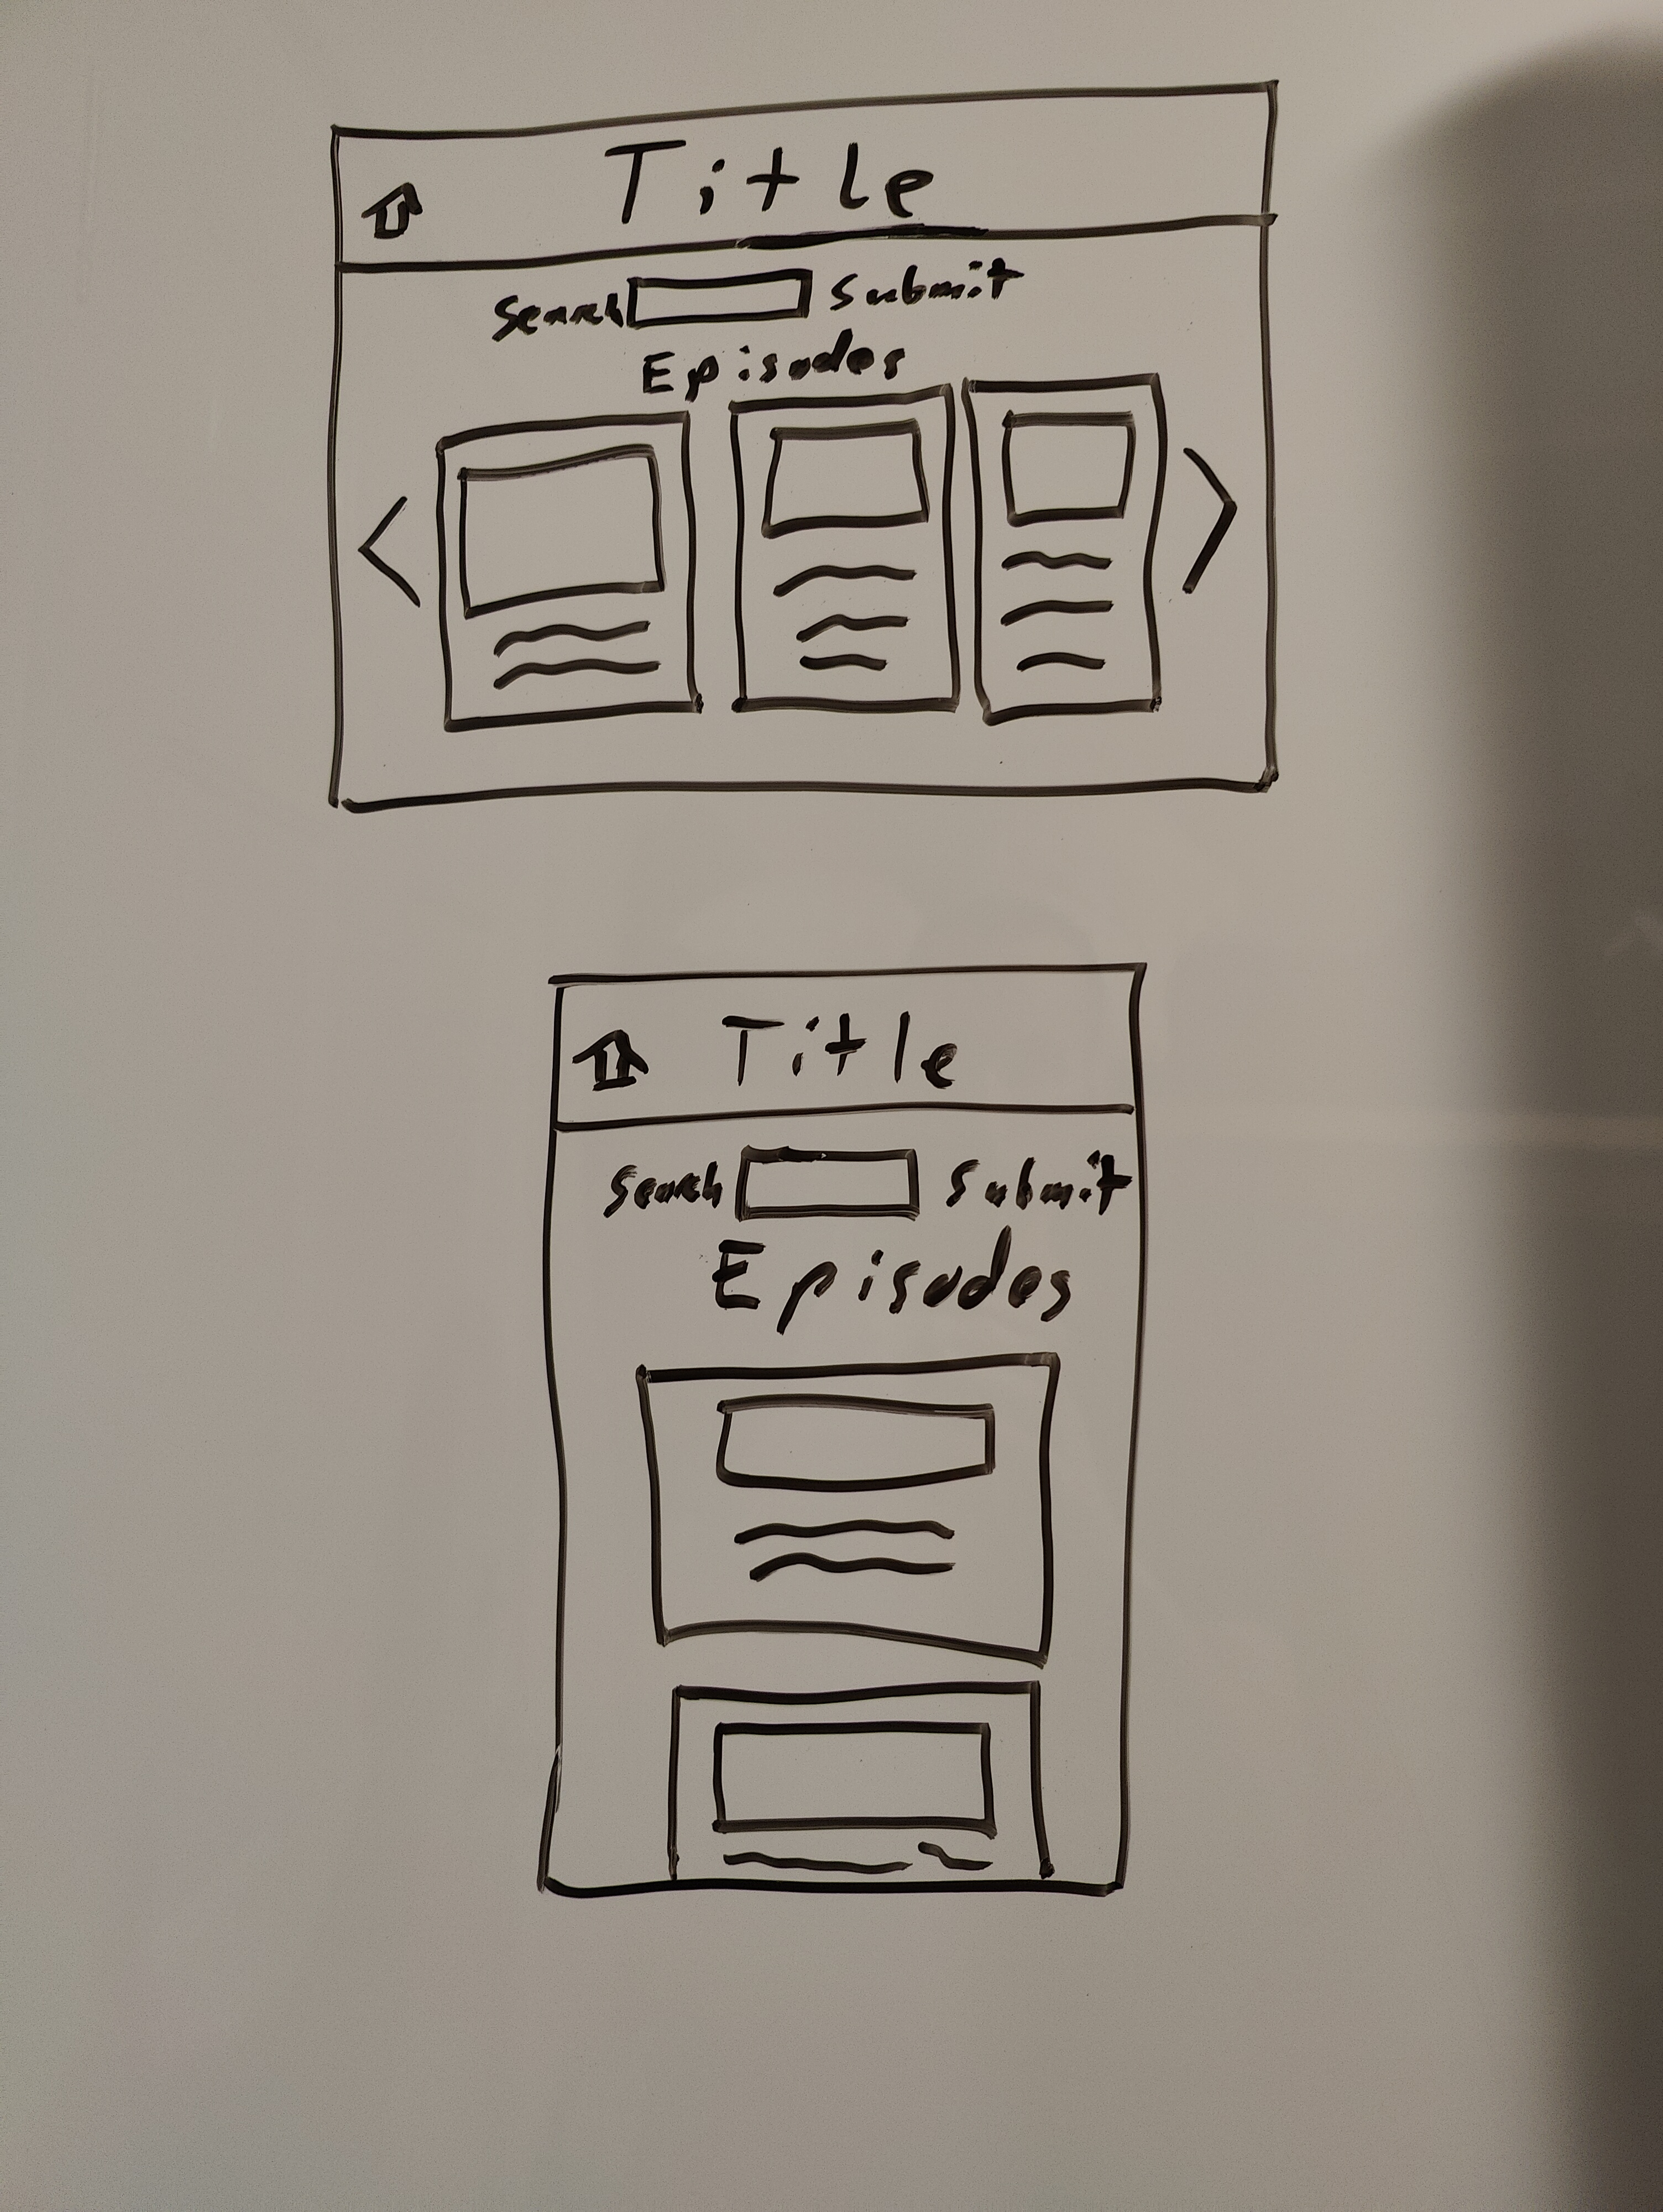 Title
Search Submit
Episodes
Title
Search Submit
Episodes